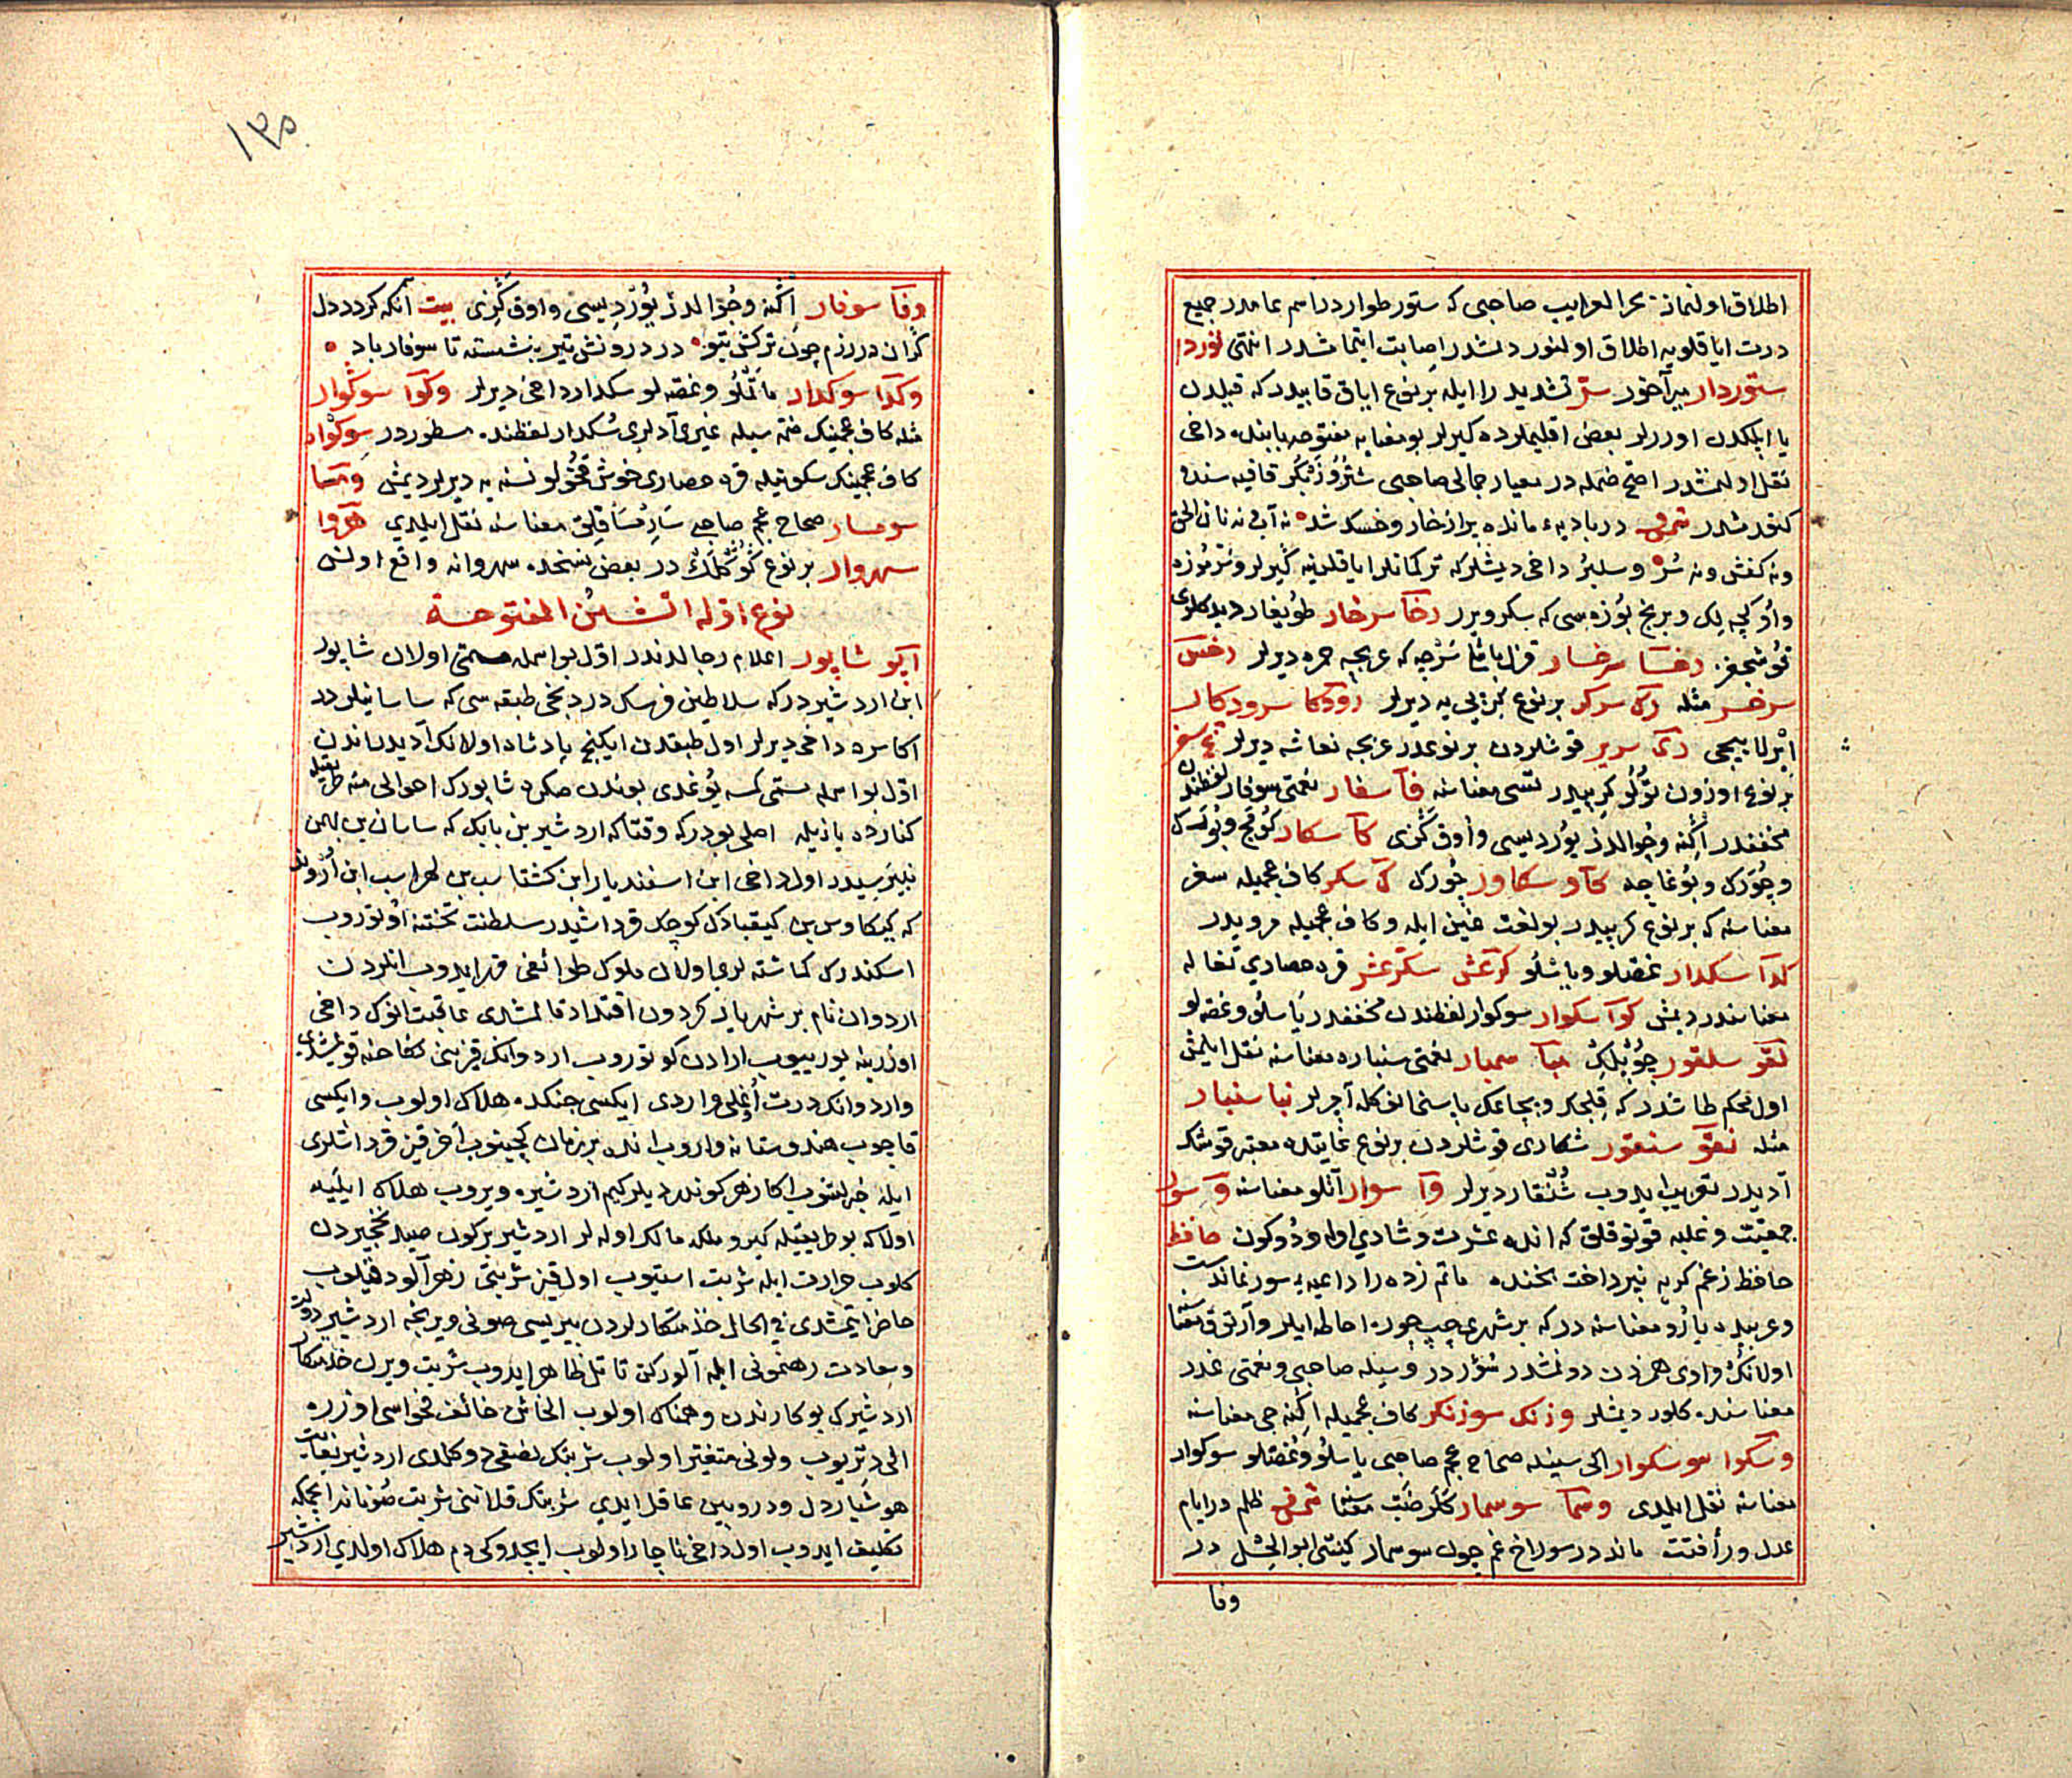 اطلاق اولنماز بحر الغرايب صاحبى كه ستور طوار در اسم عامدر جميع
درت اياقلويه اطلاق اولنور ديمشدر اصابت ايتمامشدر انتهى توردا
ستوردار ميرآخور ستر تشديد را ايله بر نوع اياق قابيدر كه قيلدن
يا ايپلكدن اوررلر بعض اقليملرده كيرلر بو معنايه مفتوحه بابنده داخى
نقل اولنمشدر اصح ضمله در معيار جمالى صاحبى شتر وزنبكر قافيه سنده
كتورمشدر در باديهء مانده پر از خار و خسك شده نه آب نه نان الحق
ونه كفش ونه ستر وسلبز داخى ديمشلر كه تركمانلر اياقلرينه كيرلر
واو كچه لك وبرنج بوزه سى كه سكرويرر رخآ سرخار طويغار ديدكلرى
قوشجغز رخسا سرخسار قزل باشا سرچه كه عربجه حمره ديرلر رخس
سرخسر مثله رك سركر بر نوع كزيجى يه ديرلر رودكا سرودكار
ايرلاييجى رى سرير قوشلردن بر نوعدر عربجه نعاشه ديرلر غ سغر
بر نوع اوزون توكلو كرپيدر تشى معناسنه فآ سفار نعمتى سوفار لفظندن
مخففدر اكنه وچوالدز يوردیسی واوق كزى كآ سكار
وچورك وبوغاچه كآو سكاور چورك ك سكر كاف عجميله سغر
معناسنه كه بر نوع كرپيدر بو لغت غين ايله وكاف عجميله مرويدر
كدآ سكدار غصه لو وياشلو كرعش سكرعش قره حصارى تغاله
معناسندر ديمش كوآ سكوار سوكوار لفظندن مخففدر ياسلو وغصه لو
لقو سلقور چوبلك مبآ سمبار نعمتى سنباره معناسنه نقل ايلمش
اول محكم طاشدر كه قلجك وبچاغك پاسنى انوكله آچرلر نبا سنبار
مثله نقو سنقور شكارى قوشلردن بر نوع غايتده معتبر قوشك
آديدر تعريب ايدوب شنقار ديرلر وآ سوار آتلو معناسنه و سور
جمعيت وغلبه قونوقلق كه انده عشرت وشادى اوله ودوكون حافظ
حافظ ز غم كريه نپرداخت بخنده ماتم زده را داعيهء سور نماندست
وعربيده بارو معناسنه در كه بر شهرى چپ چوره احاطه ايلر وآرتوق معناسنه
اولانك واوى همزه دن دونمشدر سؤر در وسيله صاحبى ونعمتى غدر
معناسنده كلور ديمشلر وزنك سوزنكر كاف عجميله اكنه جى معناسنه
وسكوا سوسكوار الى سينله صحاح عجم صاحبى ياسلو وغصه لو سوكوار
معناسنه نقل ايلدى وسمآ سوسمار كلر ضب معناسنه شمس ظلم در ايام
عدل ورأفتت ماند در سوراخ غم چون سوسمار كينتى ابو الحسل در
وفا
١٣٥
وفآ سوفار اكنه وچوالدز يوردیسی واوق كزى بيت آنكه كردد دل
كران در رزم چون تركش بتو در درونش تير بنشسته تا سوفار باد
وكدآ سوكدار ماتملو وغصه لو سكدار داخى ديرلر وكوآ سوكوار
مثله كاف عجمينك ضمه سيله غيرى آدلرى سكدار لفظنده مسطوردر سوكوار
كاف عجمينك سكونيله قره حصارى خوش قخولو نسنه يه ديرلر ديمش ومسا
سومسار صحاح عجم صاحبى معناسنه نقل ايلدى هروا
سهروار بر نوع كوكلك در بعض نسخده سهروانه واقع اولمش
نوع اوله الشين المفتوحة
اپو شاپور اعلام رجالدندر اول بو اسمله مسمى اولان شاپور
ابن اردشيردر كه سلاطين فرسك دردنجى طبقه سى كه ساسانيلردر
اكاسره داخى ديرلر اول طبقه دن ايكنجى پادشاه اولانك آديدر اندن
اول بو اسمله مسمى كمسه يوغدى بوندن صكره شاپورك احوالى
كنارده يازيله اصلى بودر كه وقتاكه اردشير بن بابك كه ساسان بن بهمن
نبيره سيدر اول داخى ابن اسفنديار ابن كشتاسب بن لهراسب ابن
كه كيكاوس بن كيقبادك كوچك قرداشيدر سلطنت تختنه اوتوروب
اسكندرك كماشته لرى اولان ملوك طوائفى قهر ايدوب انلردن
اردوان نام بر شهريار كردون اقتدار قالمشدى عاقبت انوك داخى
اوزرينه يوريوب ارادن كوتوروب اردوانك قيزينى نكاحنه قويمشدى
واردوانك درت اوغلى واردى ايكسى جنكده هلاك اولوب وايكسى
قاچوب هندوستانه واروب انده بر زمان كچينوب آخر قيز قرداشلرى
ايله خبرلشوب اكا زهر كوندرديلر كيم اردشيره ويروب هلاك ايليه
اولاكه بو طريقيله كيرو ملكه مالك اوله لر اردشير بركون صيد نخچيردن
كلوب حرارت ايله شربت استيوب اول قيز شربتى زهرآلود قيلوب
حاضر ايتمشدى فى الحال خدمتكارلردن بيريسى صونى ويرنجه اردشير دولت
وسعادت رهنمونى ايله آلوركن قاتل ظاهر ايدوب شربت ويرن خدمتكار
اردشيرك بو كارندن وهمناك اولوب الخائن خائف فحواسى اوزره
الى ديتريوب ولونى متغير اولوب شربتك نصفى دوكلدى اردشير بغايت
هوشيار دل ودوربين عاقل ايدى شربتك قلاننى شربت صونانه ايچمكه
تكليف ايدوب اول داخى ناچار اولوب ايچدوكى دم هلاك اولدى اردشير